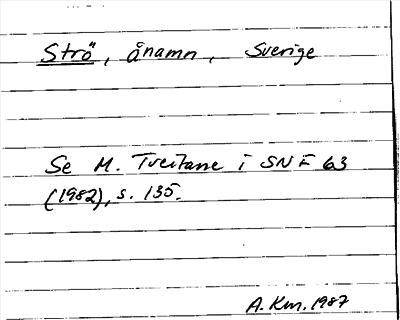 Strö, ånamn, Sverige
Se M. Tveitane i SNF 63
(1982), s. 135.
A. Km. 1987